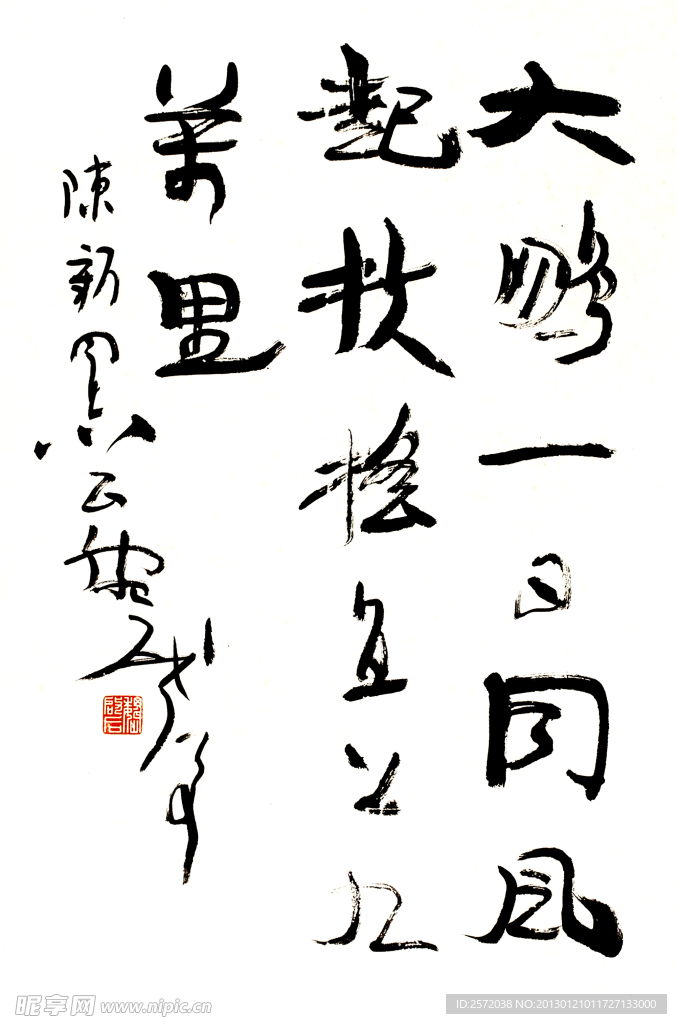 大鹏一日同风
起扶摇直上九
萬里
陳新
昵享网 www.nipic.cn
ID:2572038 NO:20130121011727133000